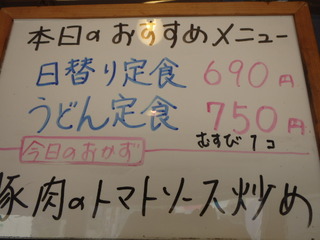 本日のおすすめメニュー
日替り定食 690円
うどん定食 750円
むすび1コ
今日のおかず
豚肉のトマトソース炒め